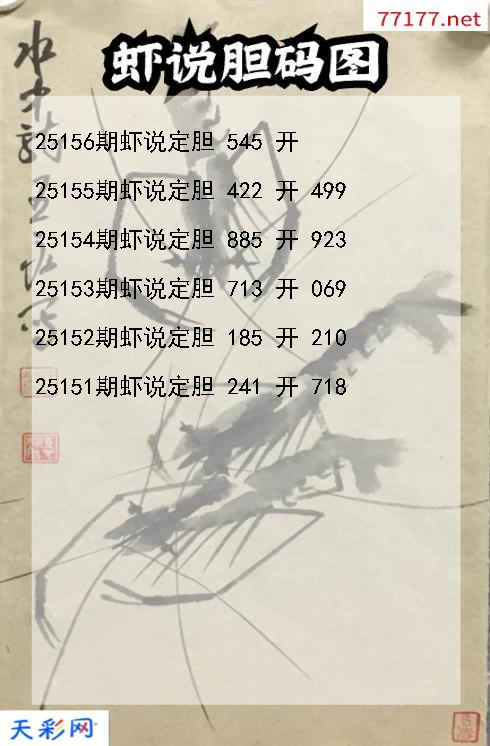 77177.net
虾说胆码图
25156期虾说定胆 545 开
25155期虾说定胆 422 开 499
25154期虾说定胆 885 开 923
25153期虾说定胆 713 开 069
25152期虾说定胆 185 开 210
25151期虾说定胆 241 开 718
天彩网